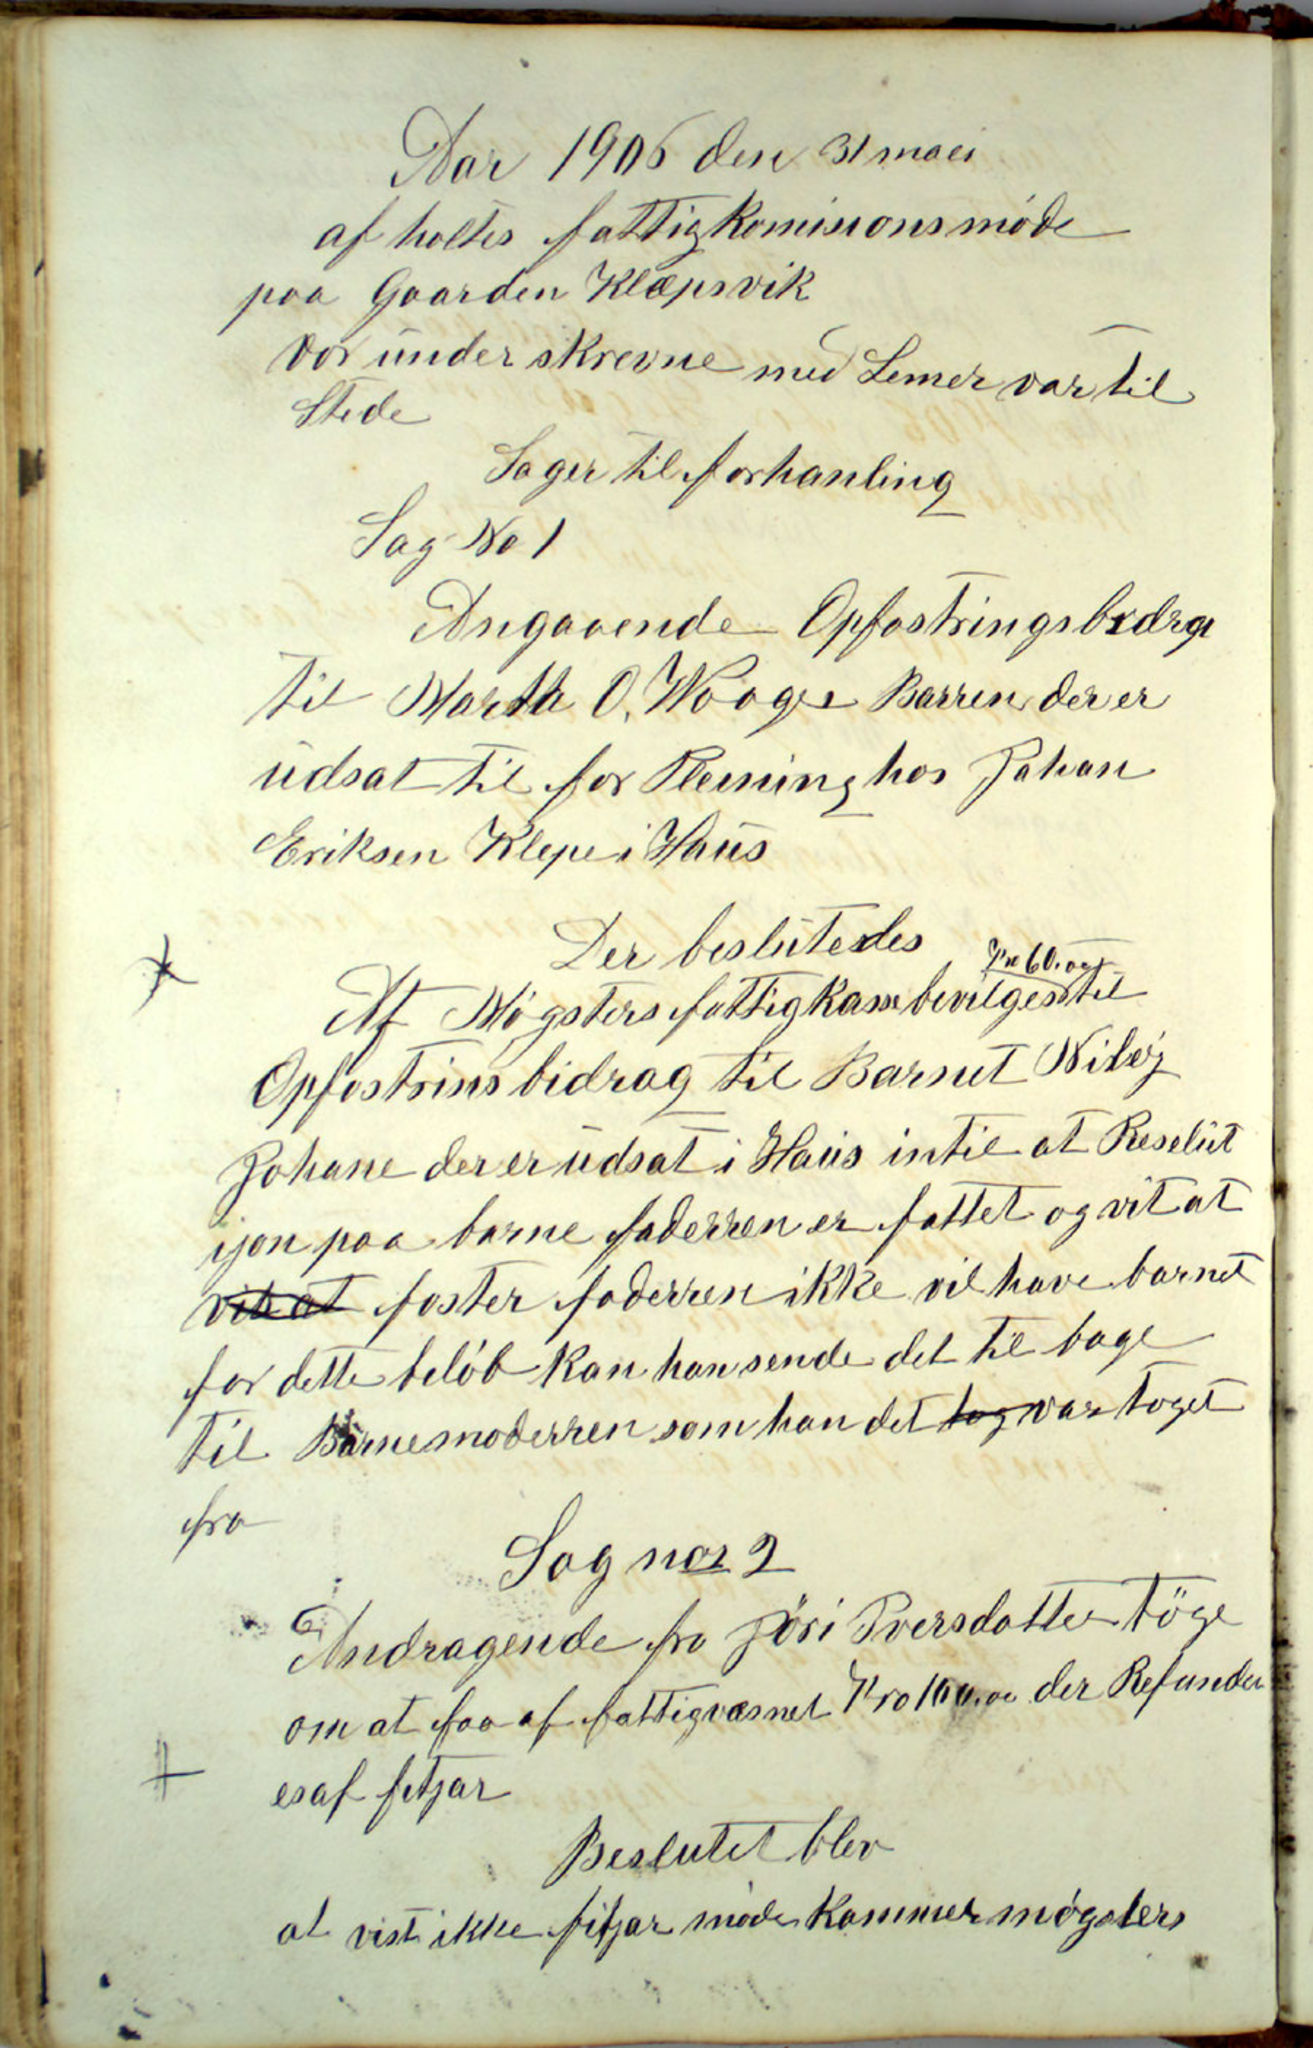 Aar 1906 den 31 maei
af holtes fattigkomisionsmöde
paa Gaarden Klæpsvik
vor under skrevne med Lemer var til
Stede
Sager til forhanling
Sag No 1
Angaaende Opfostringsbidrg
til Martha O. Waage Barren der er
udsat til for Pleining hos Johan
Eriksen Kleppe i Haus
Der beslutedes
Af Møgsters fattigkasse bevilges Kr 60.00 til
Opfostrins bidrag til Barnet
Johane der er udsat i Haus intil at Reselut
ijon paa barne faderren er fattet og vit at
vit at foster faderren ikke vil have barnet
for dette beløb kan han sende det til bage
til Barnemoderren som han det tog var toget
fra
Sag nor 2
Andragende fra Jöri Iversdatter Töge
om at faa af fattigvæsnet Kro 100.00 der Refunder
es af fitjar
Beslutet blev
at vist ikke fitjar møde kommer møgsters